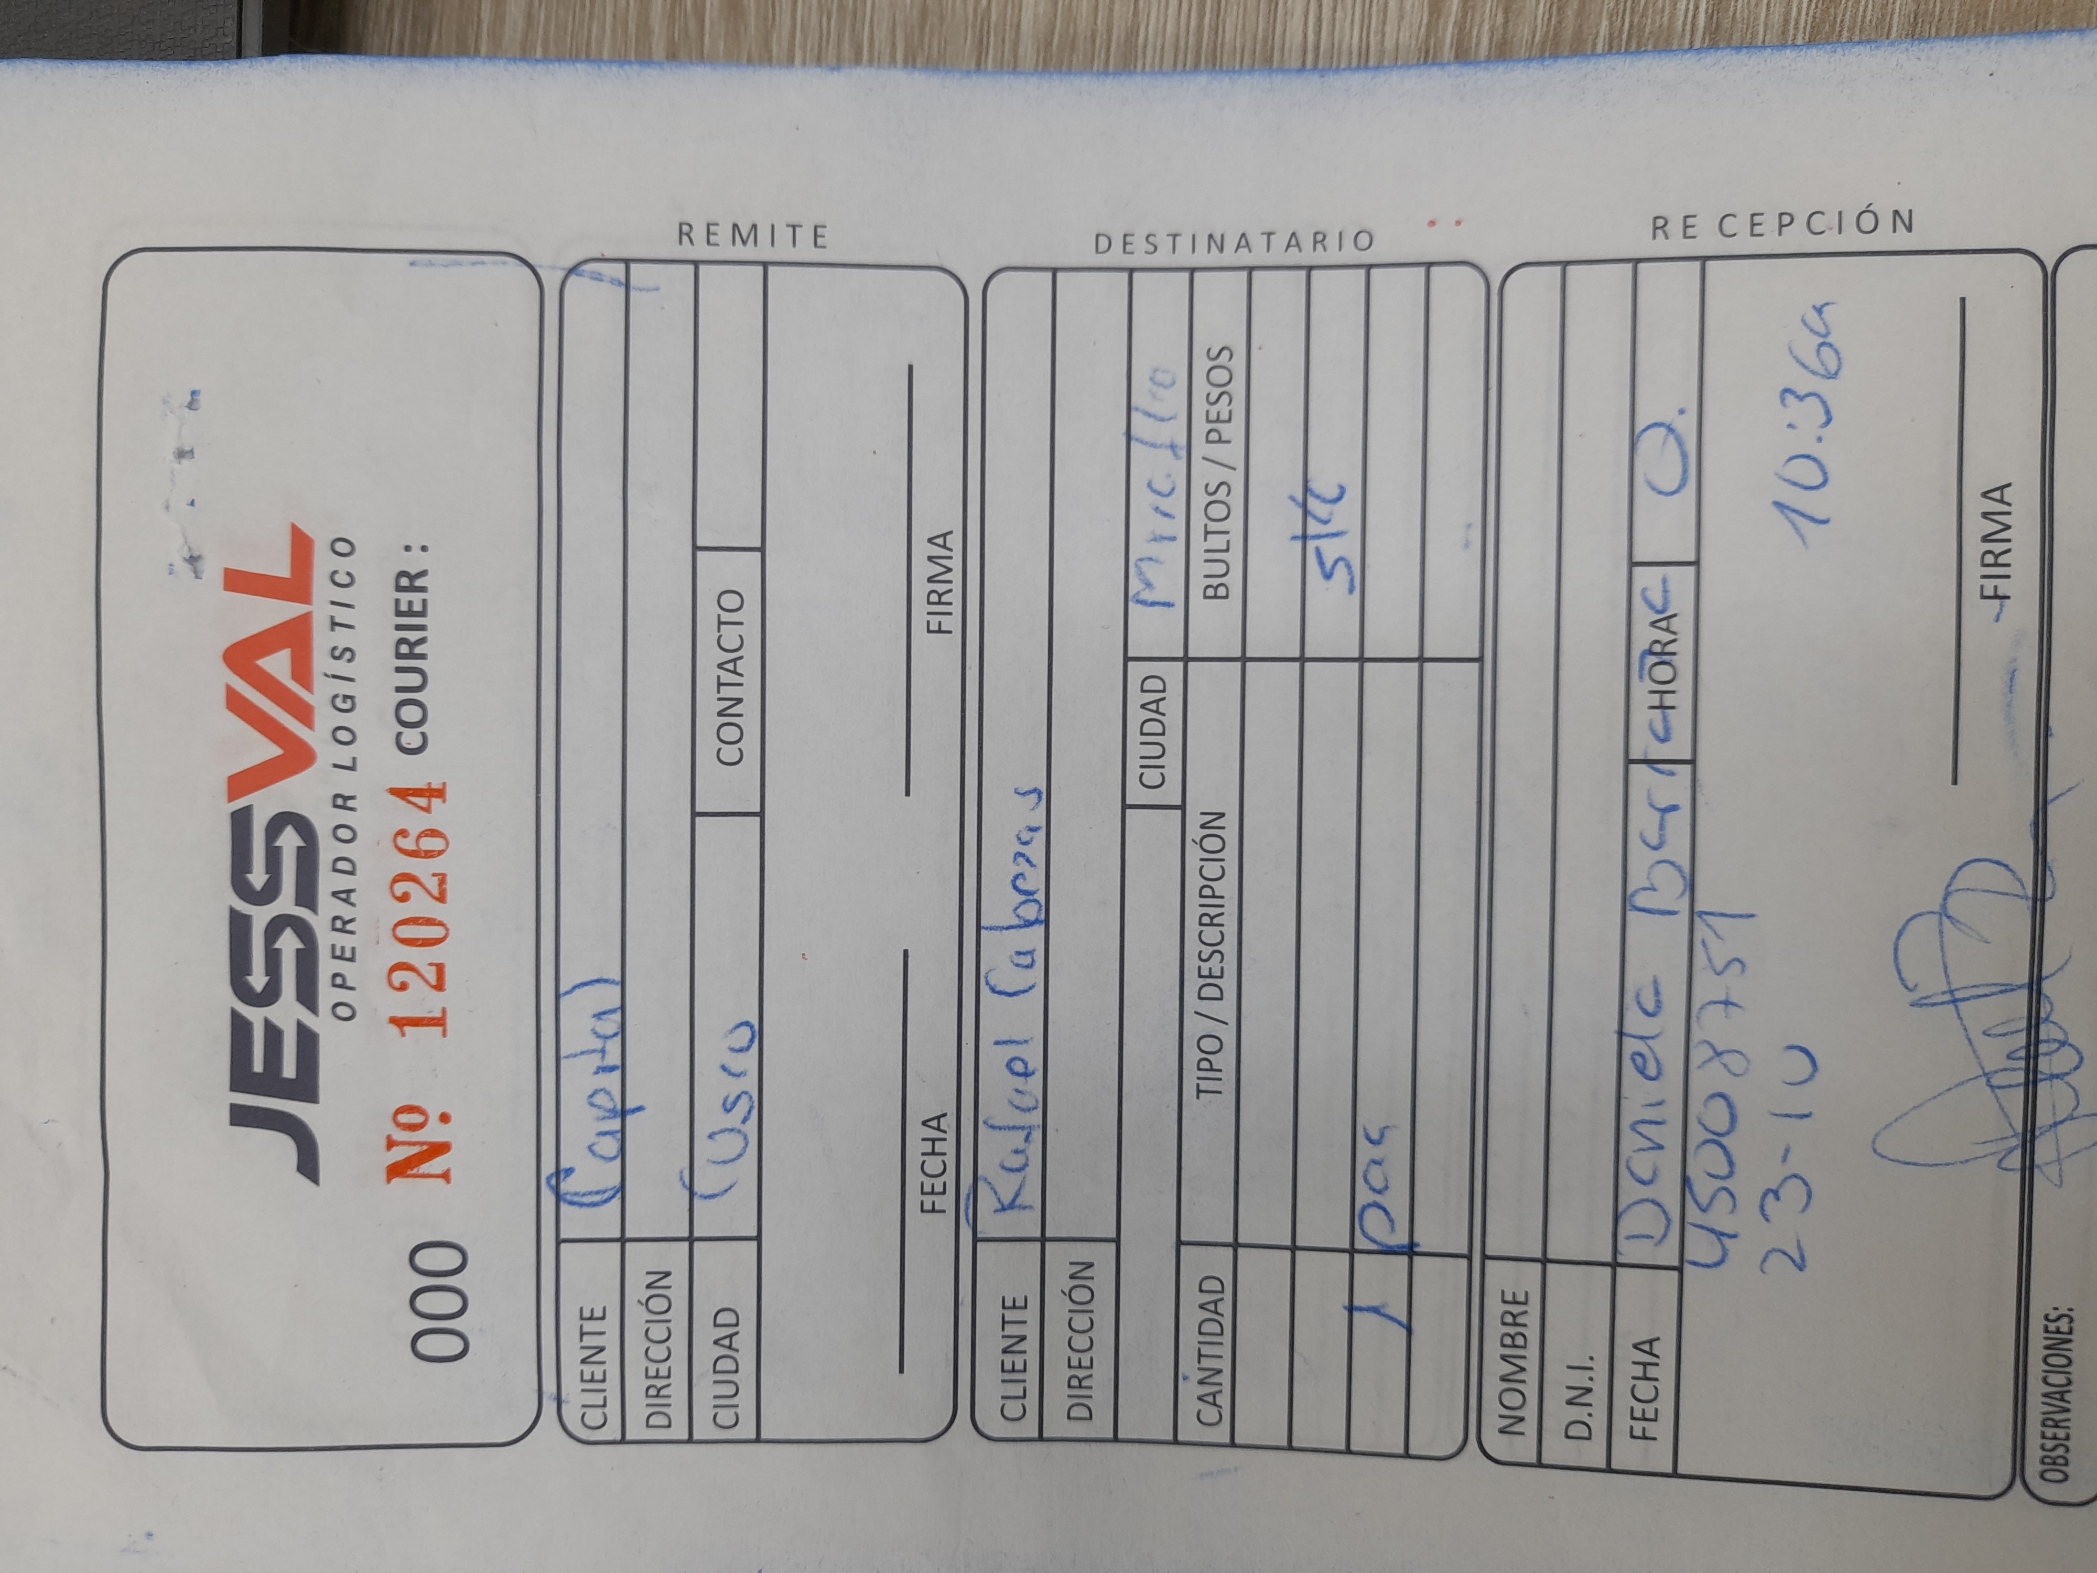 JESSVAL
OPERADOR LOGÍSTICO
000 Nº 120264 COURIER :
CLIENTE Capital
DIRECCIÓN
CIUDAD Cusco CONTACTO
FECHA FIRMA
REMITE
CLIENTE Rafael Cabezas
DIRECCIÓN
CIUDAD
CANTIDAD TIPO / DESCRIPCIÓN BULTOS / PESOS
1 paq
DESTINATARIO
NOMBRE
D.N.I.
FECHA Daniela HORA O.
45008751
23-10 10:36a
FIRMA
RECEPCIÓN
OBSERVACIONES: